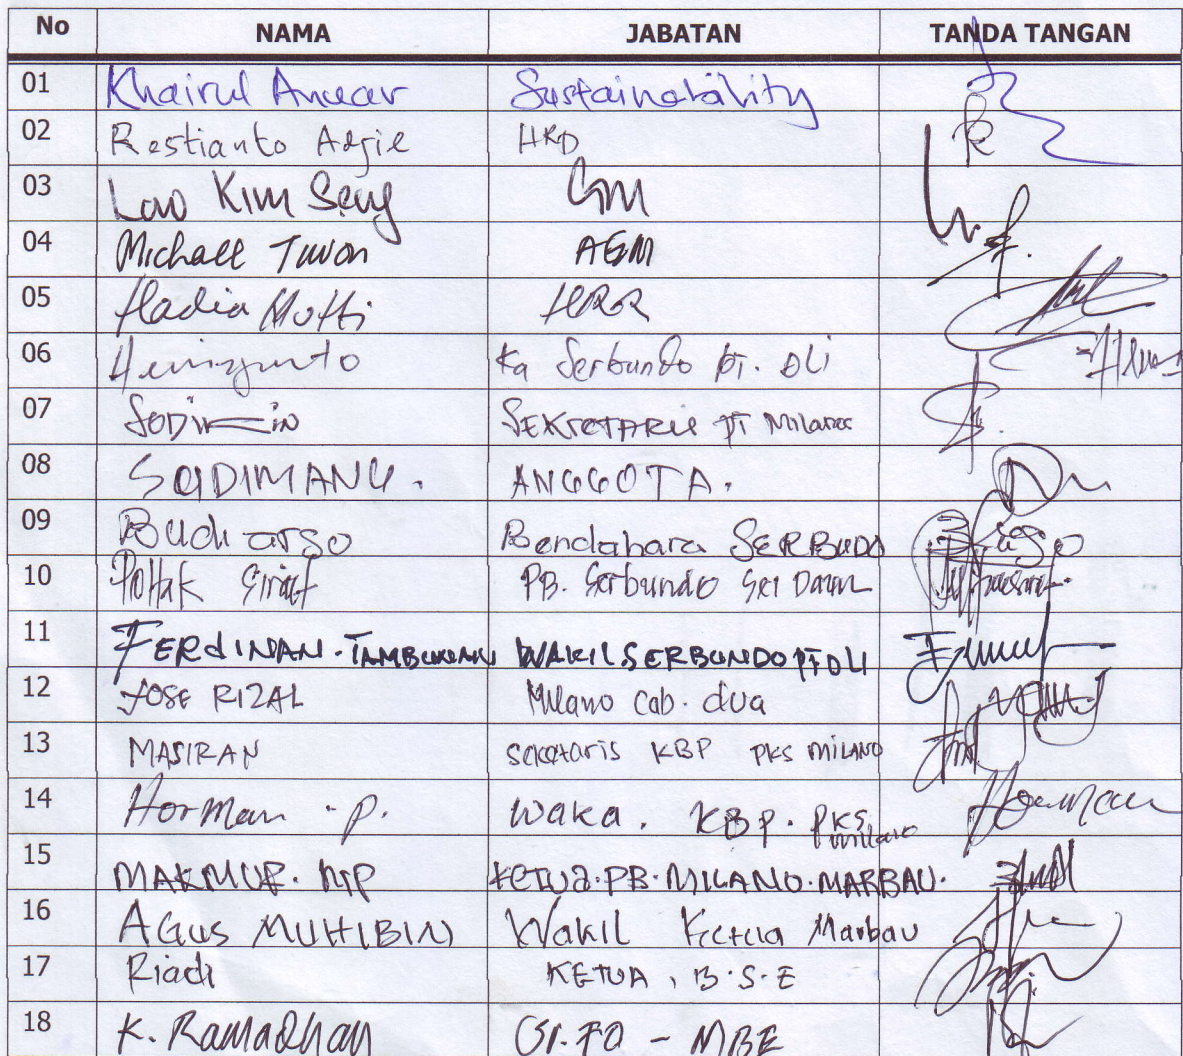 No NAMA JABATAN TANDA TANGAN
01 Khairul Anuar Sustainability
02 Restianto Adjie HRD
03 Low Kim Seng GM
04 Michael Tuvon AGM
05 Hadia Mufti
06 Ka Serbundo PT. DLI
07 SODIKIN SEKRETARIS PT Milano
08 SADIMAN ANGGOTA.
09 Budi arso Bendahara SERBUDO
10 PB. Serbundo Sei Daun
11 FERdINAN. TAMBUNAN WAKIL SERBUNDO PT DLI
12 JOSE RIZAL Milano cab. dua
13 MASIRAN KBP PKS MILANO
14 Horman P. Waka. KBP. PKS Milano
15 MAKMUR. KETUA. PB. MILANO. MARBAU.
16 AGUS MUHIBIN Wakil Ketua Marbau
17 Riadi KETUA, B.S.E
18 K. RAMADHAN - MBE